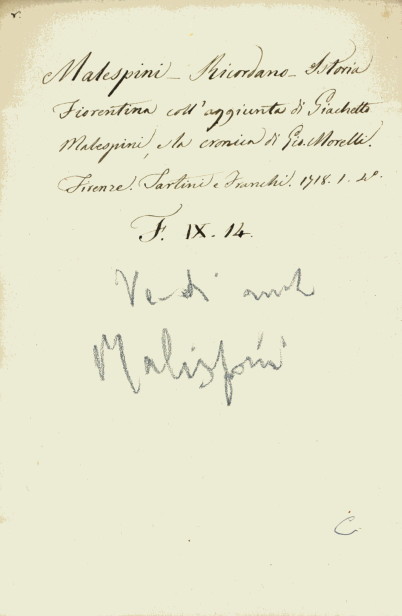 Malespini - Ricordano - Istoria
Fiorentina coll'aggiunta di Giachetto
Malespini, e la cronica di Gio. Morelli.
Firenze. Tartini e Franchi. 1718. 1. 4º.
F. IX. 14.
Vedi anch
Malispini
C.